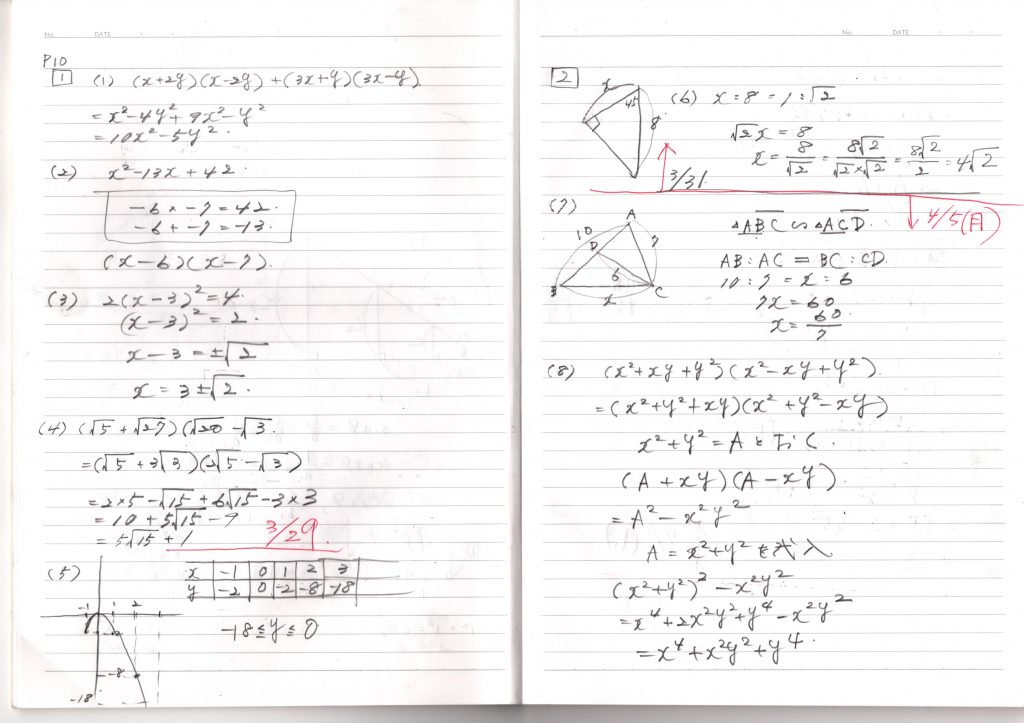 No. DATE
P10
1 (1) (x+2y)(x-2y)+(3x+y)(3x-y)
=x²-4y²+9x²-y²
=10x²-5y².
(2) x²-13x+42.
-6×-7=42.
-6+-7=-13.
(x-6)(x-7).
(3) 2(x-3)²=4.
(x-3)²=2.
x-3=±√2
x=3±√2.
(4) (√5+√27)(√20-√3.
=(√5+3√3)(2√5-√3)
=2×5-√15+6√15-3×3
=10+5√15-9
=5√15+1
3/29.
(5) x -1 0 1 2 3
y -2 0 -2 -8 -18
-18≦y≦0
-1 1 2
-8
-18
No. DATE
2 (6) x:8=1:√2
x 45 8
√2x=8
x=8/√2=8√2/√2×√2=8√2/2=4√2
3/31.
4/5(月)
(7) △ABC∽△ACD.
A 10 D 7 6 B x C
AB:AC=BC:CD.
10:7=x:6
7x=60
x=60/7.
(8) (x²+xy+y²)(x²-xy+y²).
=(x²+y²+xy)(x²+y²-xy)
x²+y²=Aとおく.
(A+xy)(A-xy).
=A²-x²y²
A=x²+y²を代入
(x²+y²)²-x²y²
=x⁴+2x²y²+y⁴-x²y²
=x⁴+x²y²+y⁴.